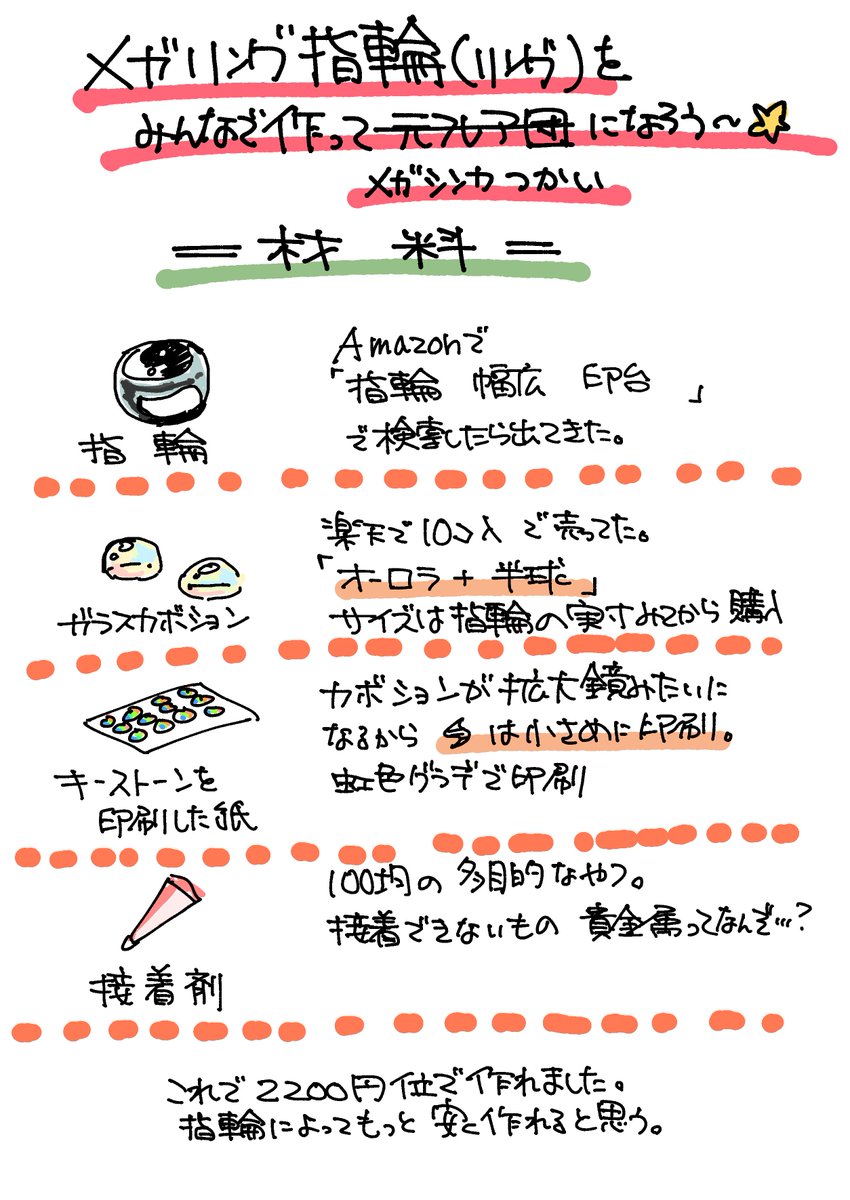 メガリング指輪(リング)を
みんなで作って元フレア団になろう～
メガシンカつかい
＝材 料＝
Amazonで
「指輪 幅広 印台 」
で検索したら出てきた。
指 輪
楽天で10コ入で売ってた。
「オーロラ+半球」
サイズは指輪の実寸みてから購入
ガラスカボション
カボションが拡大鏡みたいに
なるから は小さめに印刷。
虹色グラデで印刷
キーストーンを
印刷した紙
100均の多目的なやつ。
接着できないもの 貴金属ってなんぞ…?
接着剤
これで2200円位で作れました。
指輪によってもっと安く作れると思う。